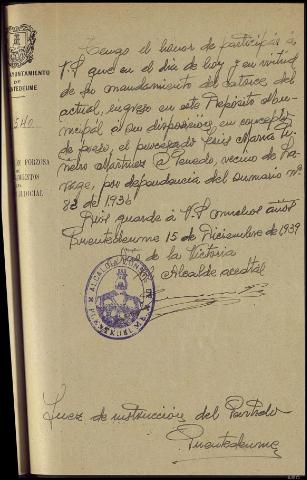 AYUNTAMIENTO
DE
PUENTEDEUME
540
FORZOSA
JUDICIAL
Tengo el honor de participar á
V.S que en el dia de hoy y en virtud
de su mandamiento del catorce del
actual, ingresó en este Depósito Mu-
nicipal á su disposición, en concepto
de preso, el procesado Jesús María
Martinez @ Penedo, vecino de
por dependencia del sumario nº
82 de 1936
Dios guarde á V.S muchos años
Puentedeume 15 de Diciembre de 1939
Año de la Victoria
Alcalde acctal
ALCALDIA
PUENTEDEUME
Juez de instrucción del Partido
Puentedeume